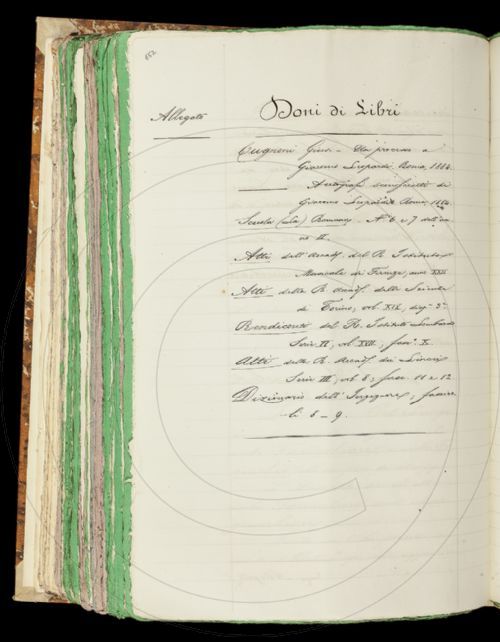 Allegato
Doni di Libri
Cugnoni Gius. - Un processo a
Giacomo Leopardi. Roma, 1884.
Autografi di
Giacomo Leopardi. Roma, 1884.
Scuola (La) Romana. N.i 6 e 7 dell'an
no II.
Atti dell'Accad. del R. Istituto
Musicale di Firenze, anno XXII
Atti della R. Accad. delle Scienze
di Torino; vol. XIX, disp. 5.a
Rendiconto del R. Istituto Lombardo
Serie II, vol. XVII; fasc. X.
Atti della R. Accad. dei Lincei
Serie III; vol. 8; fasc. 11 e 12
Dizionario dell'Ingegnere; fascico
li 8 - 9.